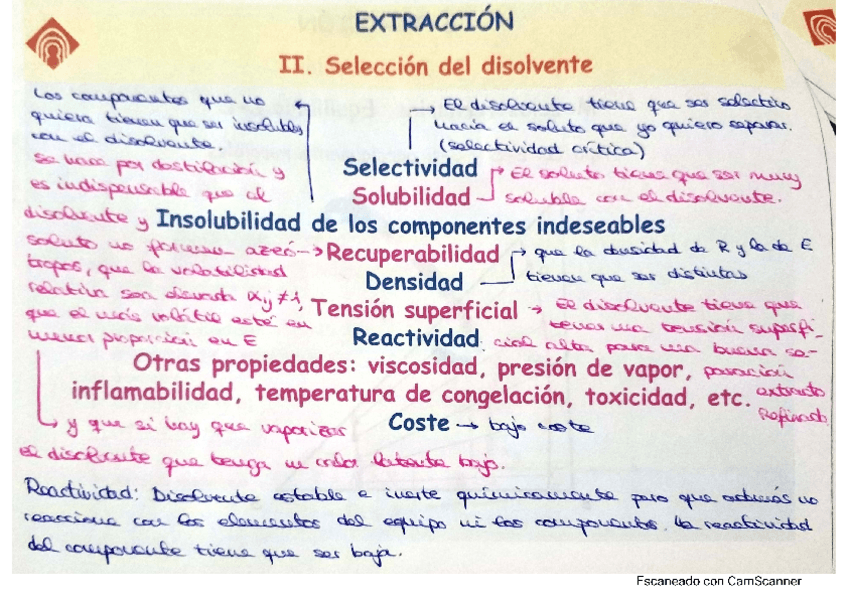 EXTRACCIÓN
II. Selección del disolvente
Los componentes que no
quiera tienen que ser insolubles
con el disolvente.
→ El disolvente tiene que ser selectivo
hacia el soluto que yo quiero separar.
(selectividad crítica)
Selectividad
Solubilidad
→ El soluto tiene que ser muy
soluble con el disolvente.
Insolubilidad de los componentes indeseables
Se hace por destilación y
es indispensable que el
disolvente y
soluto no formen azeó-
tropos, que la volatilidad
relativa sea elevada αij ≠ 1,
que el más volátil esté en
menor proporción en E
→ Recuperabilidad
Densidad
→ que la densidad de R y la de E
tienen que ser distintas
Tensión superficial → El disolvente tiene que
tener una tensión superfi-
cial alta para una buena se-
paración
extracto
Refinado
Reactividad
Otras propiedades: viscosidad, presión de vapor,
inflamabilidad, temperatura de congelación, toxicidad, etc.
Coste → bajo coste
→ y que si hay que vaporizar
el disolvente que tenga un calor latente bajo.
Reactividad: Disolvente estable e inerte químicamente para que además no
reaccione con los elementos del equipo ni los componentes. la reactividad
del componente tiene que ser baja.
Escaneado con CamScanner